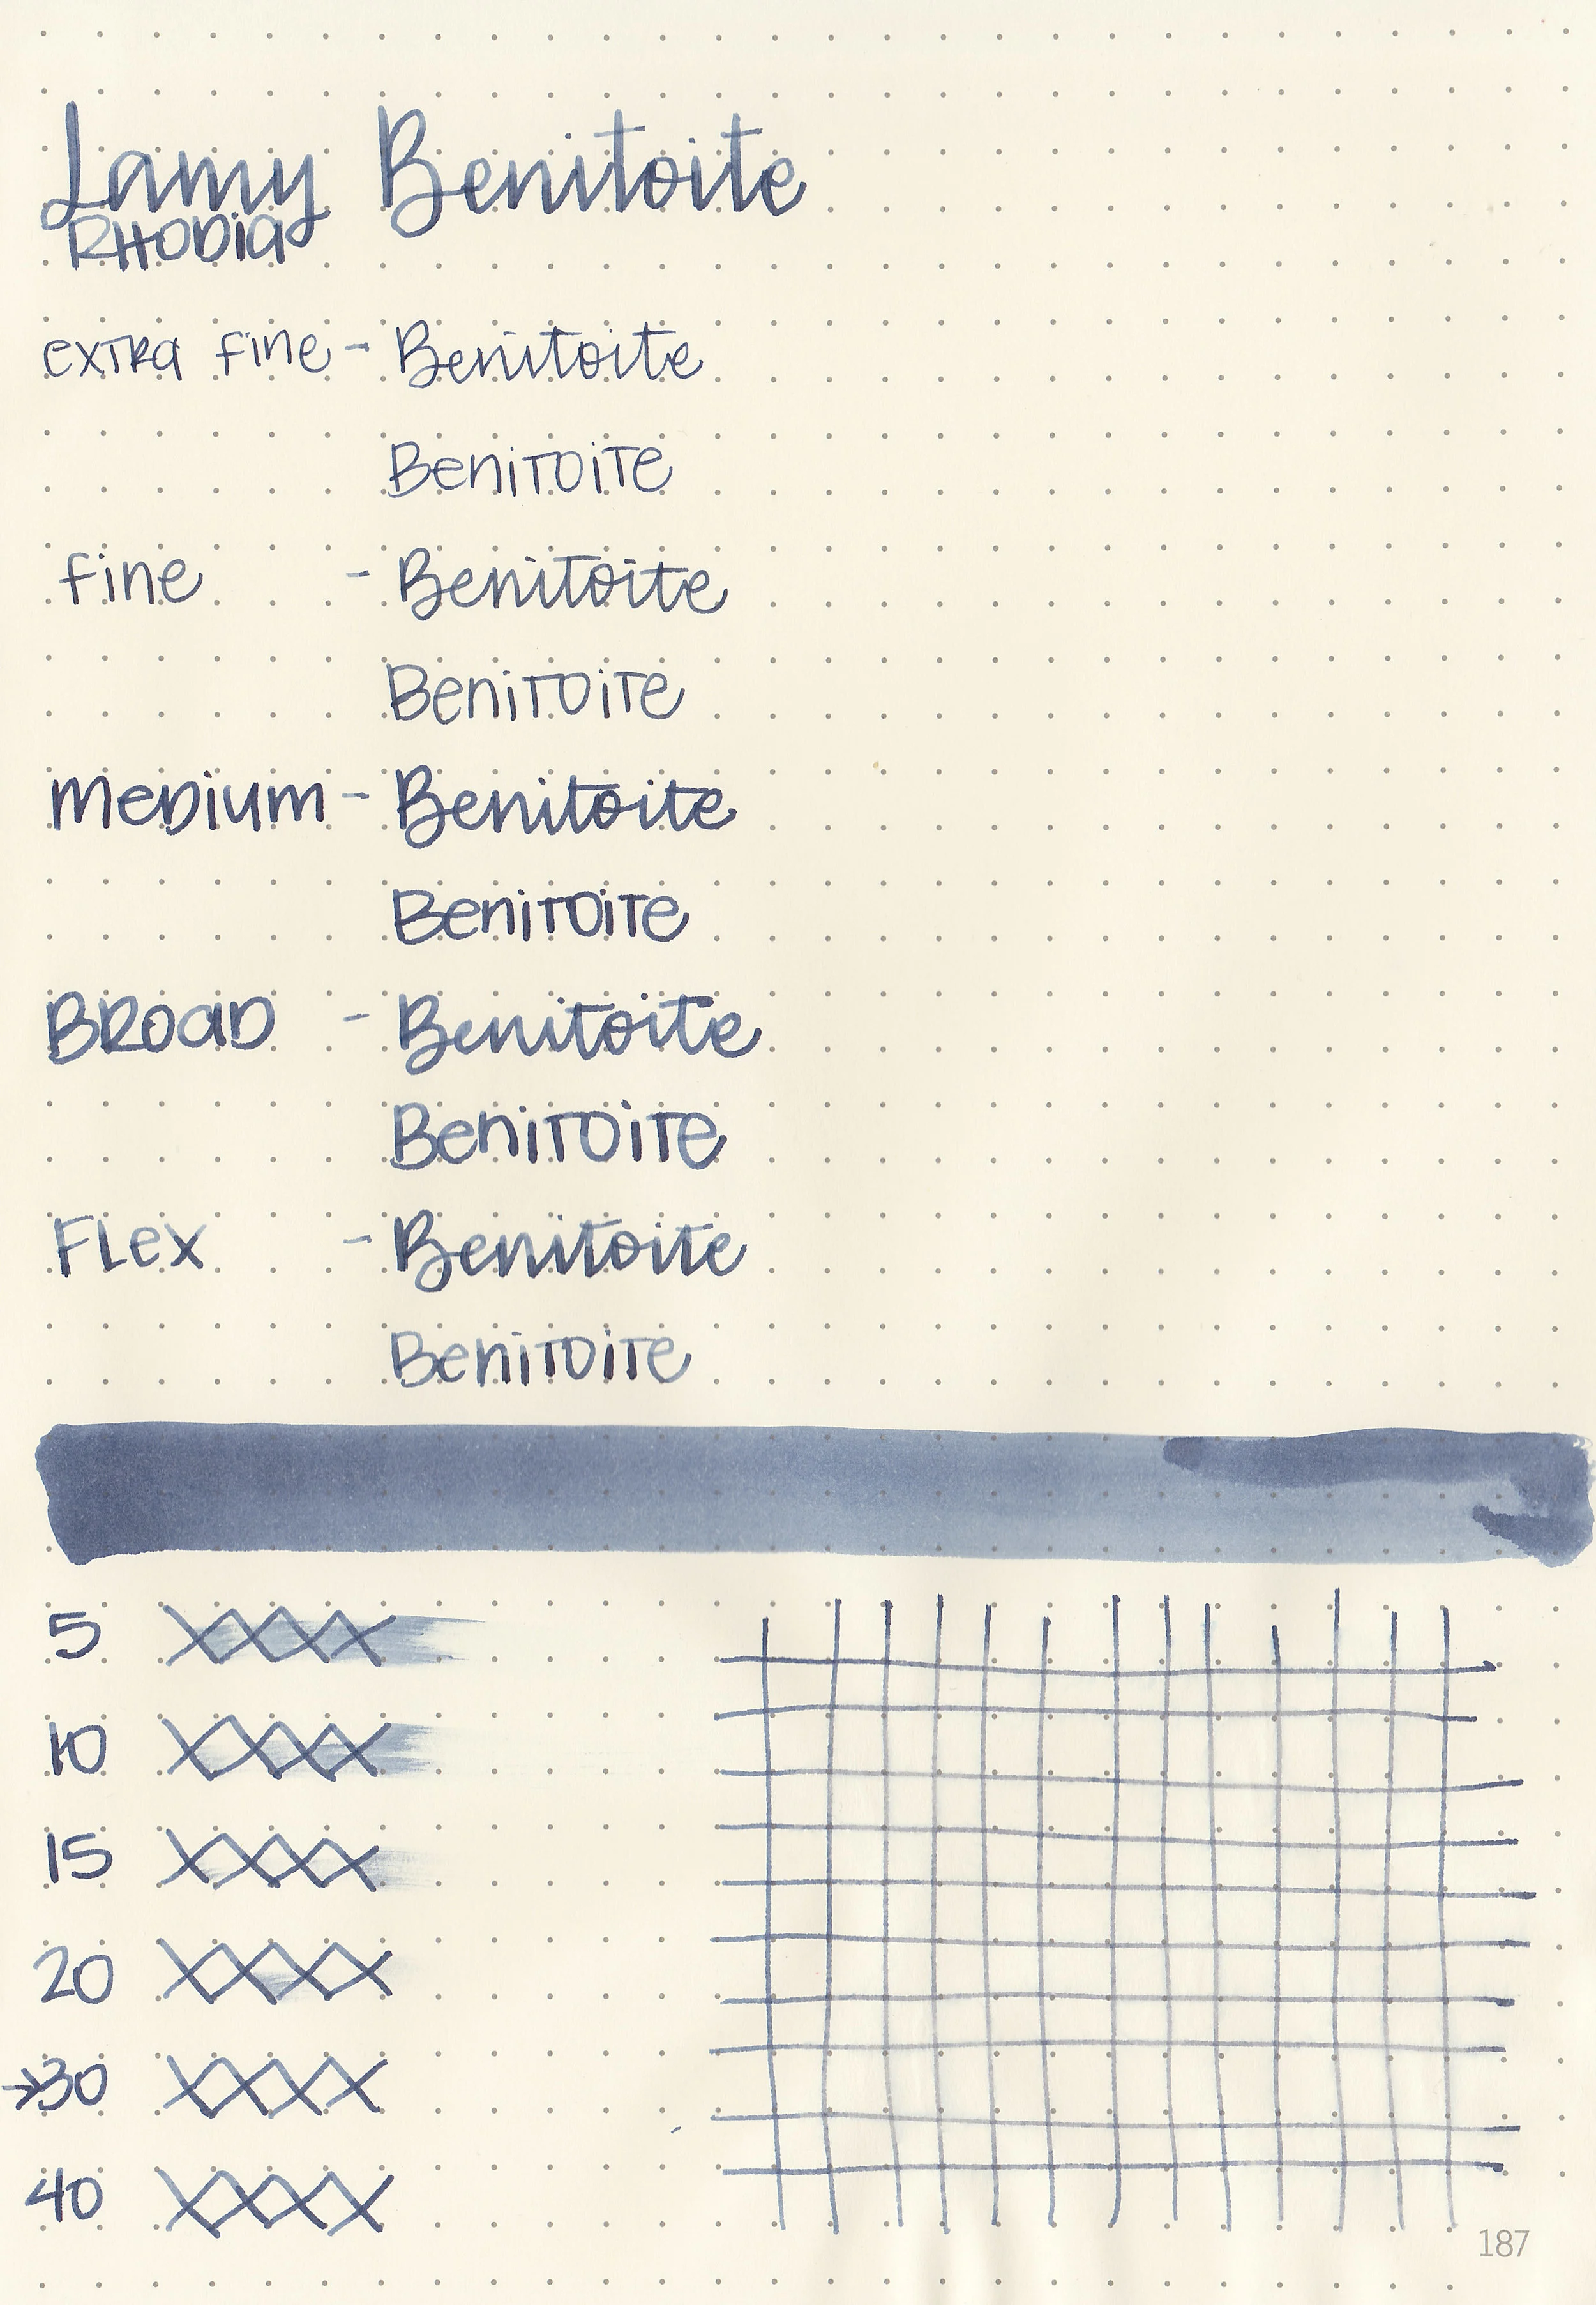 Lamy Benitoite
RHODIA
extra fine - Benitoite
Benitoite
fine - Benitoite
Benitoite
MeDium - Benitoite
Benitoite
BROAD - Benitoite
Benitoite
FLex - Benitoite
Benitoite
5 XXXX
10 XXXX
15 XXXX
20 XXXX
→30 XXXX
40 XXXX
187